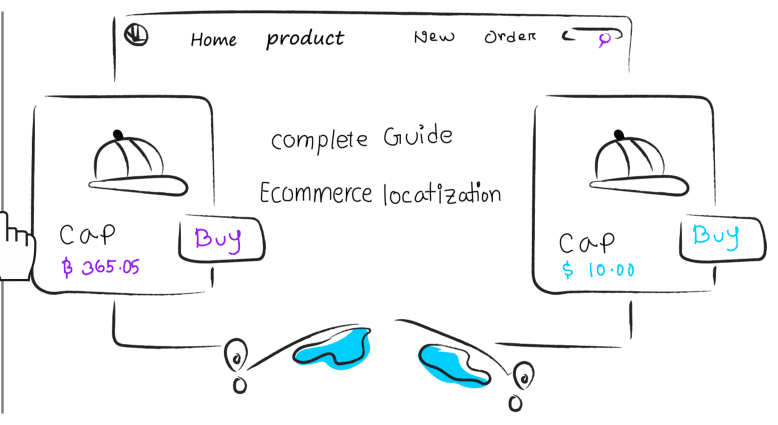 Home product New Order
complete Guide
Ecommerce locatization
Cap
Buy
฿ 365.05
Cap
Buy
$ 10.00